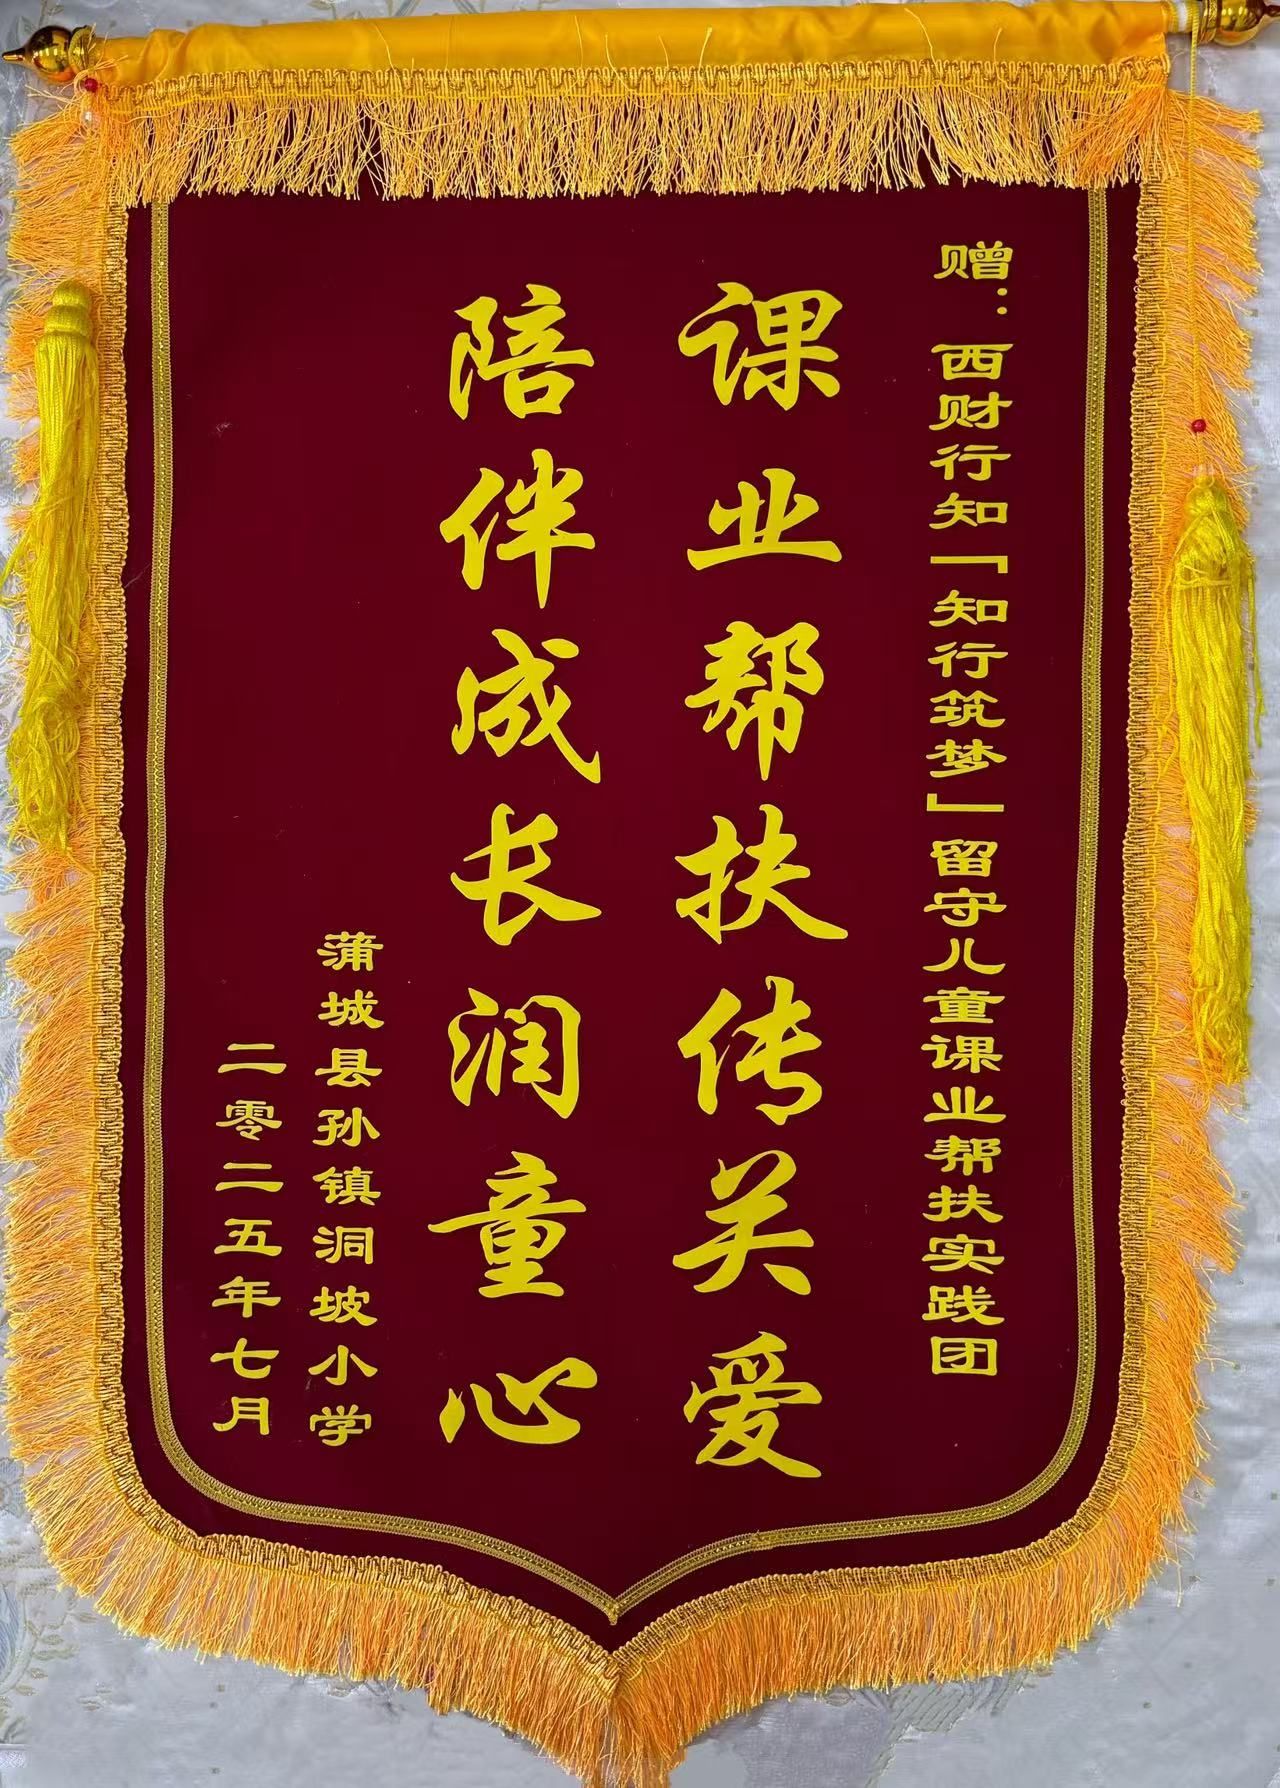 赠：西财行知「知行筑梦」留守儿童课业帮扶实践团
课业帮扶传关爱
陪伴成长润童心
蒲城县孙镇洞坡小学
二零二五年七月